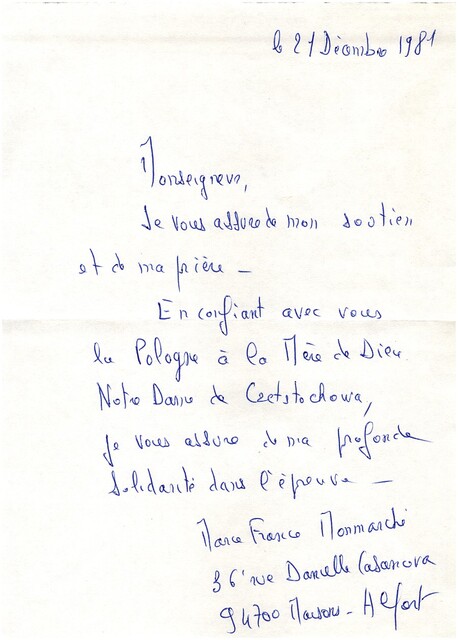 le 21 Décembre 1981
Monseigneur,
Je vous assure de mon soutien
et de ma prière —
En confiant avec vous
la Pologne à la Mère de Dieu
Notre Dame de Czetstochowa,
je vous assure de ma profonde
Solidarité dans l'épreuve —
Marie France Monmarché
36 rue Danielle Casanova
94700 Maisons-Alfort